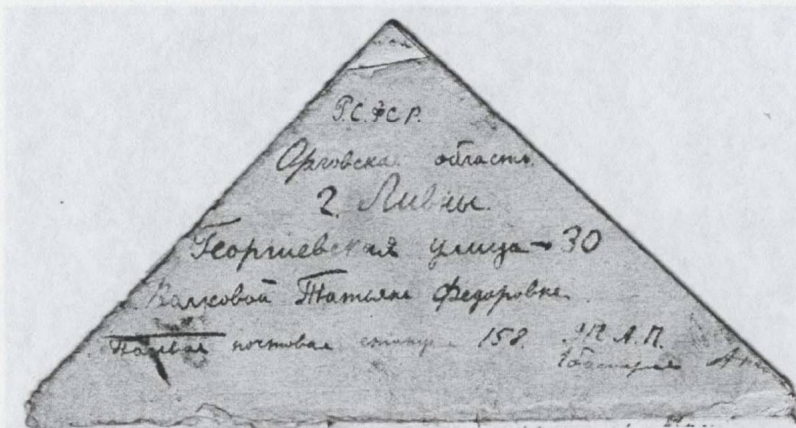 Р.С.Ф.С.Р.
Орловская область.
г. Ливны.
Георгиевская улица - 30
Волковой Татьяне Федоровне.
Полевая почтовая станция 158. А.П.
1 батарея